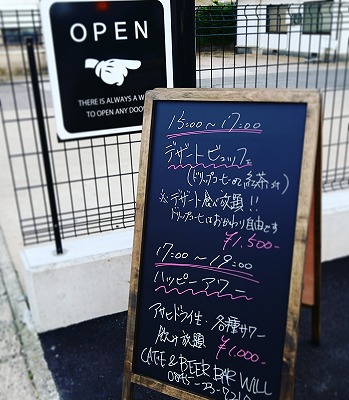 OPEN
THERE IS ALWAYS A W
TO OPEN ANY DOO
15:00〜17:00
デザートビュッフェ
(ドリップコーヒーor紅茶付)
※デザート食べ放題!!
ドリップコーヒーはおかわり自由です
¥1,500-
17:00〜19:00
ハッピーアワー
アサヒドライ生、各種サワー
飲み放題 ¥1,000-
CAFE & BEER BAR WILL